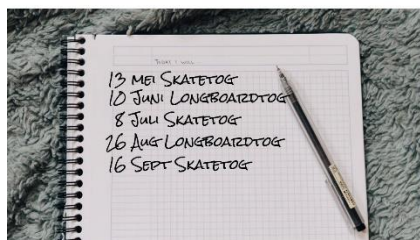 13 mei Skatetog
10 Juni Longboardtog
8 Juli Skatetog
26 Aug Longboardtog
16 Sept Skatetog